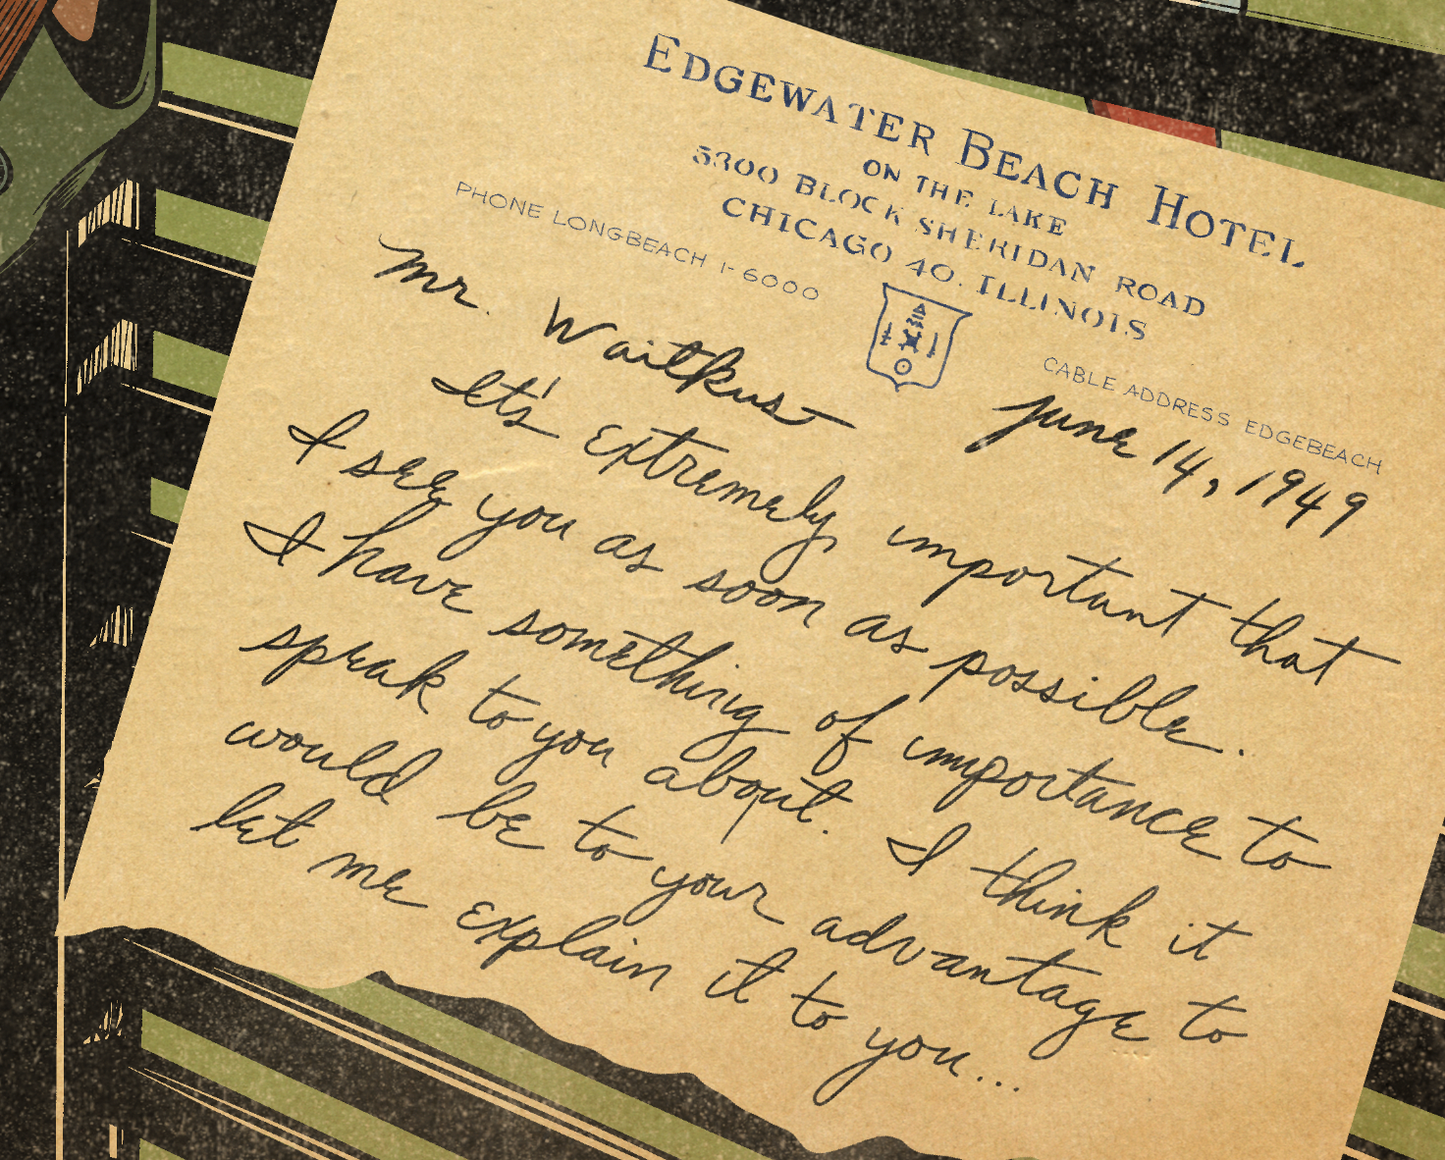 EDGEWATER BEACH HOTEL
ON THE LAKE
5300 BLOCK SHERIDAN ROAD
CHICAGO 40, ILLINOIS
PHONE LONGBEACH 1-6000
CABLE ADDRESS EDGEBEACH
June 14, 1949
Mr. Waitkus—
It's extremely important that
I see you as soon as possible.
I have something of importance to
speak to you about. I think it
would be to your advantage to
let me explain it to you...